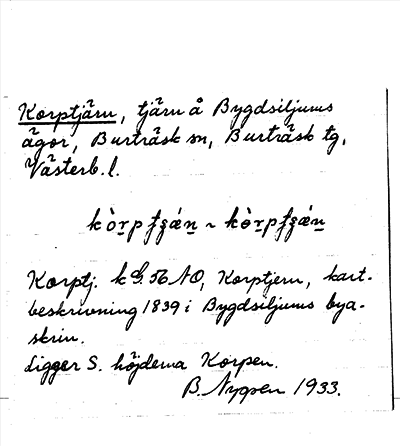 Korptjärn, tjärn å Bygdsiljums
ägor, Burträsk sn, Burträsk tg,
Västerb. l.
kòrp ~ kòrp
Korptj. k G. 56 NO, Korptjern, kart-
beskrivning 1839 i Bygdsiljums bya-
skrin.
Ligger S. höjderna Korpen.
B. Nygren 1933.